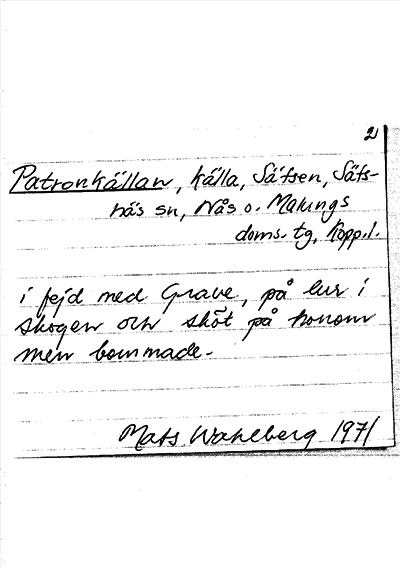 2
Patronkällan, källa, Säfsen, Säfs-
näs sn, Nås o. Malungs
doms. tg, Kopp. l.
i fejd med Grave, på lur i
skogen och sköt på honom
men bommade.
Mats Wahlberg 1971